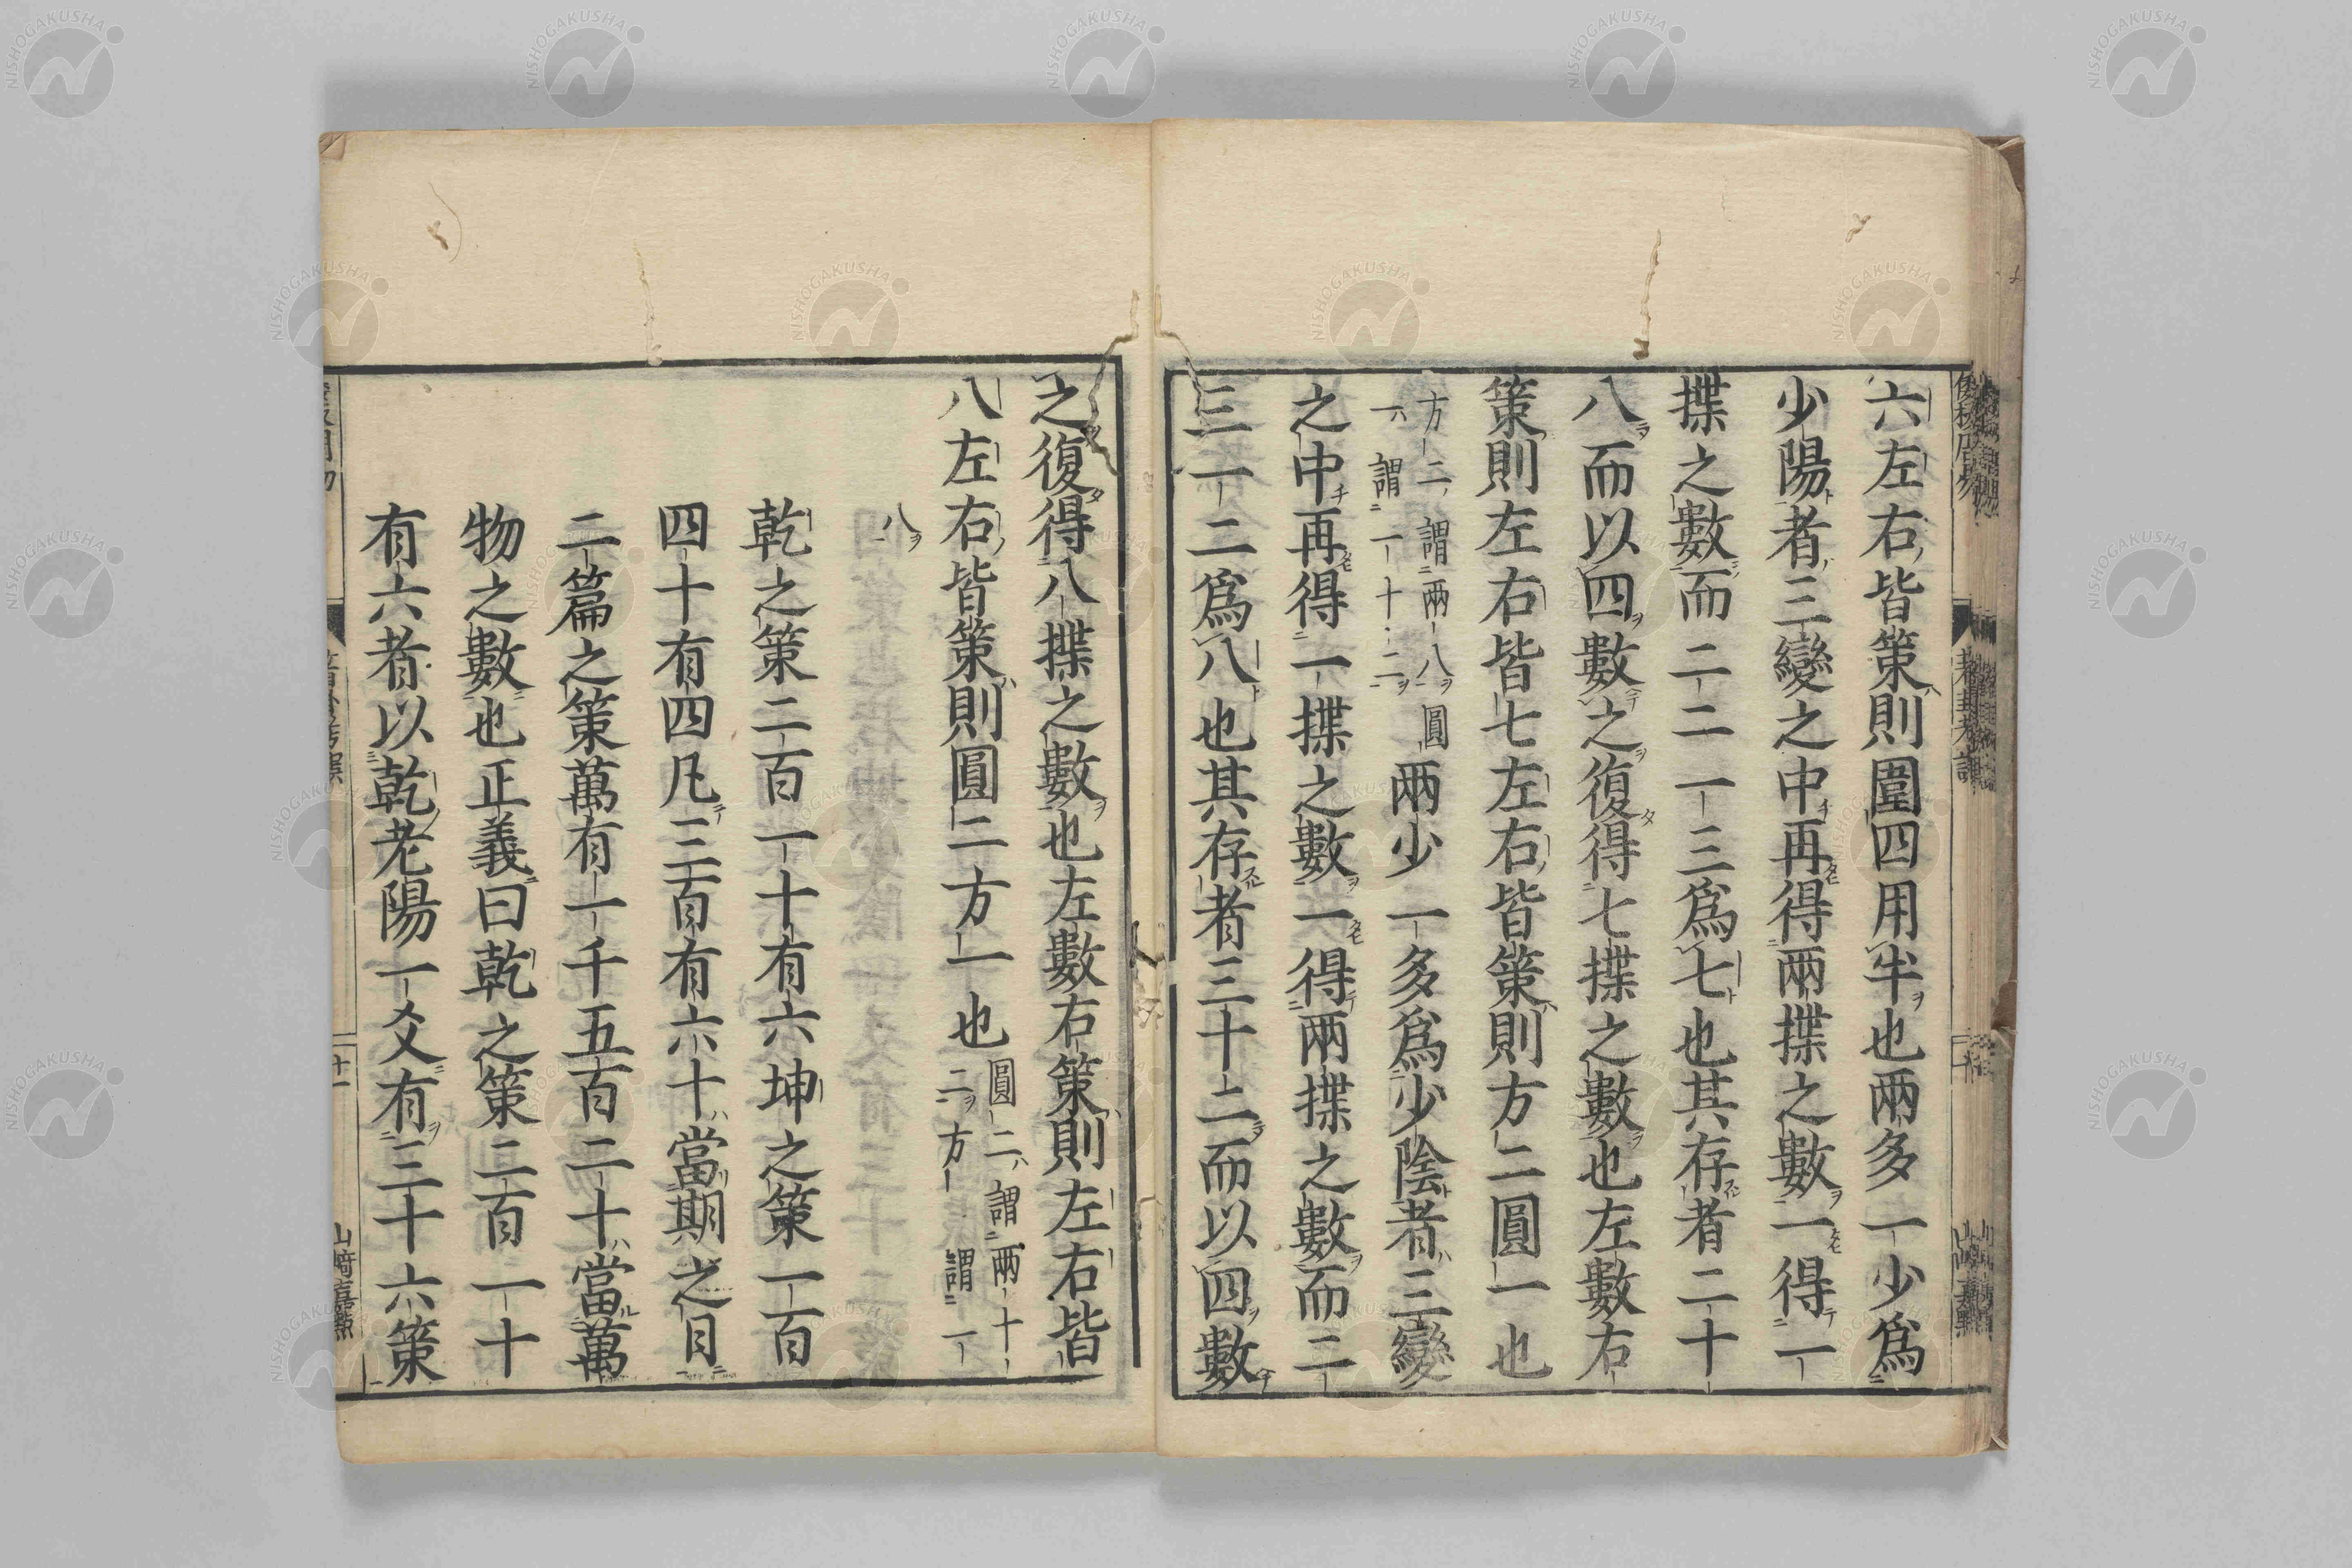 六左右皆策則圍四用半也兩多一少爲
少陽者三變之中再得兩揲之數一得一
揲之數而二二一三爲七也其存者二十
八而以四數之復得七揲之數也左數右
策則左右皆七左右皆策則方二圓一也
方二謂兩八圓
一謂一十二
兩少一多爲少陰者三變
之中再得一揲之數一得兩揲之數而二
三一二爲八也其存者三十二而以四數
之復得八揲之數也左數右策則左右皆
八左右皆策則圓二方一也
圓二謂兩十
二方一謂一
八
乾之策二百一十有六坤之策一百
四十有四凡三百有六十當期之日
二篇之策萬有一千五百二十當萬
物之數也正義曰乾之策二百一十
有六者以乾老陽一爻有三十六策
蓍卦考誤
十一
山﨑嘉點
NISHOGAKUSHA